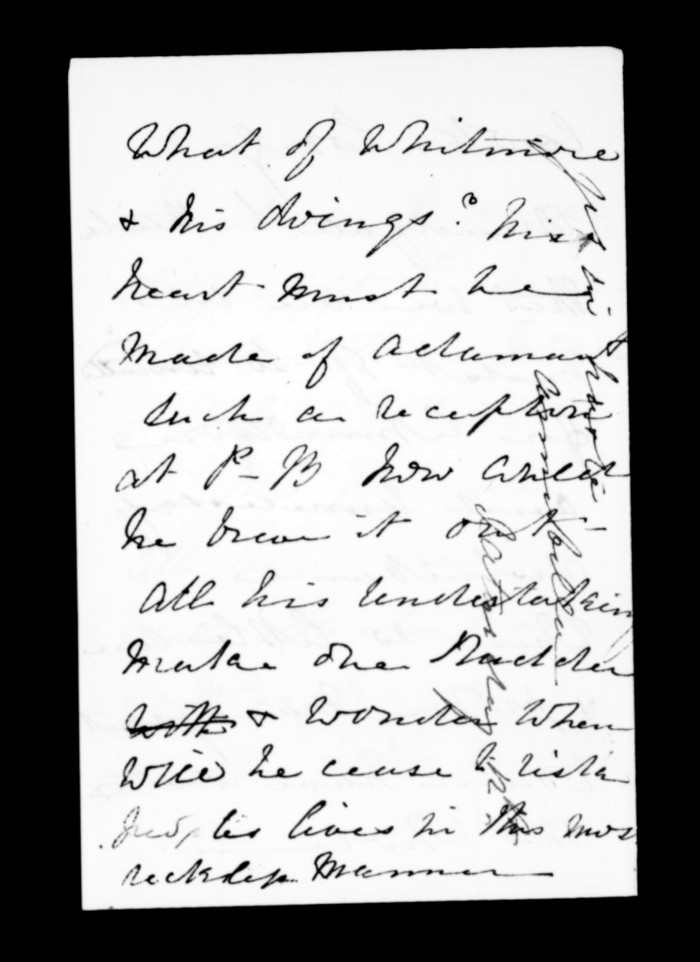 What of Whitmore
& his doings? his
heart must be
made of adamant
such a reception
at P-B how could
he brave it out -
All his undertaking
make one shudder
with & wonder when
will he cease to risk
peoples lives in this mos
reckless manner